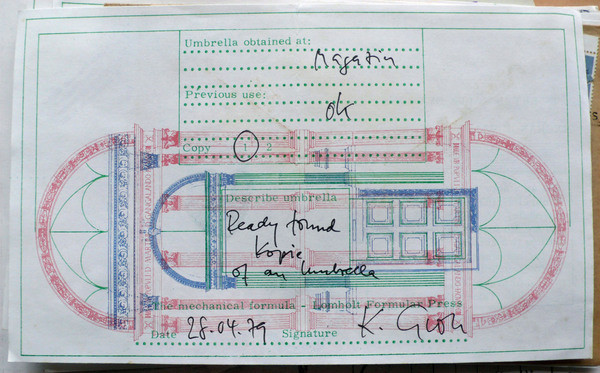 Umbrella obtained at:
Magazin
Previous use:
ok
Copy 1 2
Describe umbrella
Ready found
Kopie
of an Umbrella
The mechanical formula - Lomholt Formular Press
Date 28.04.79 Signature K. Groh